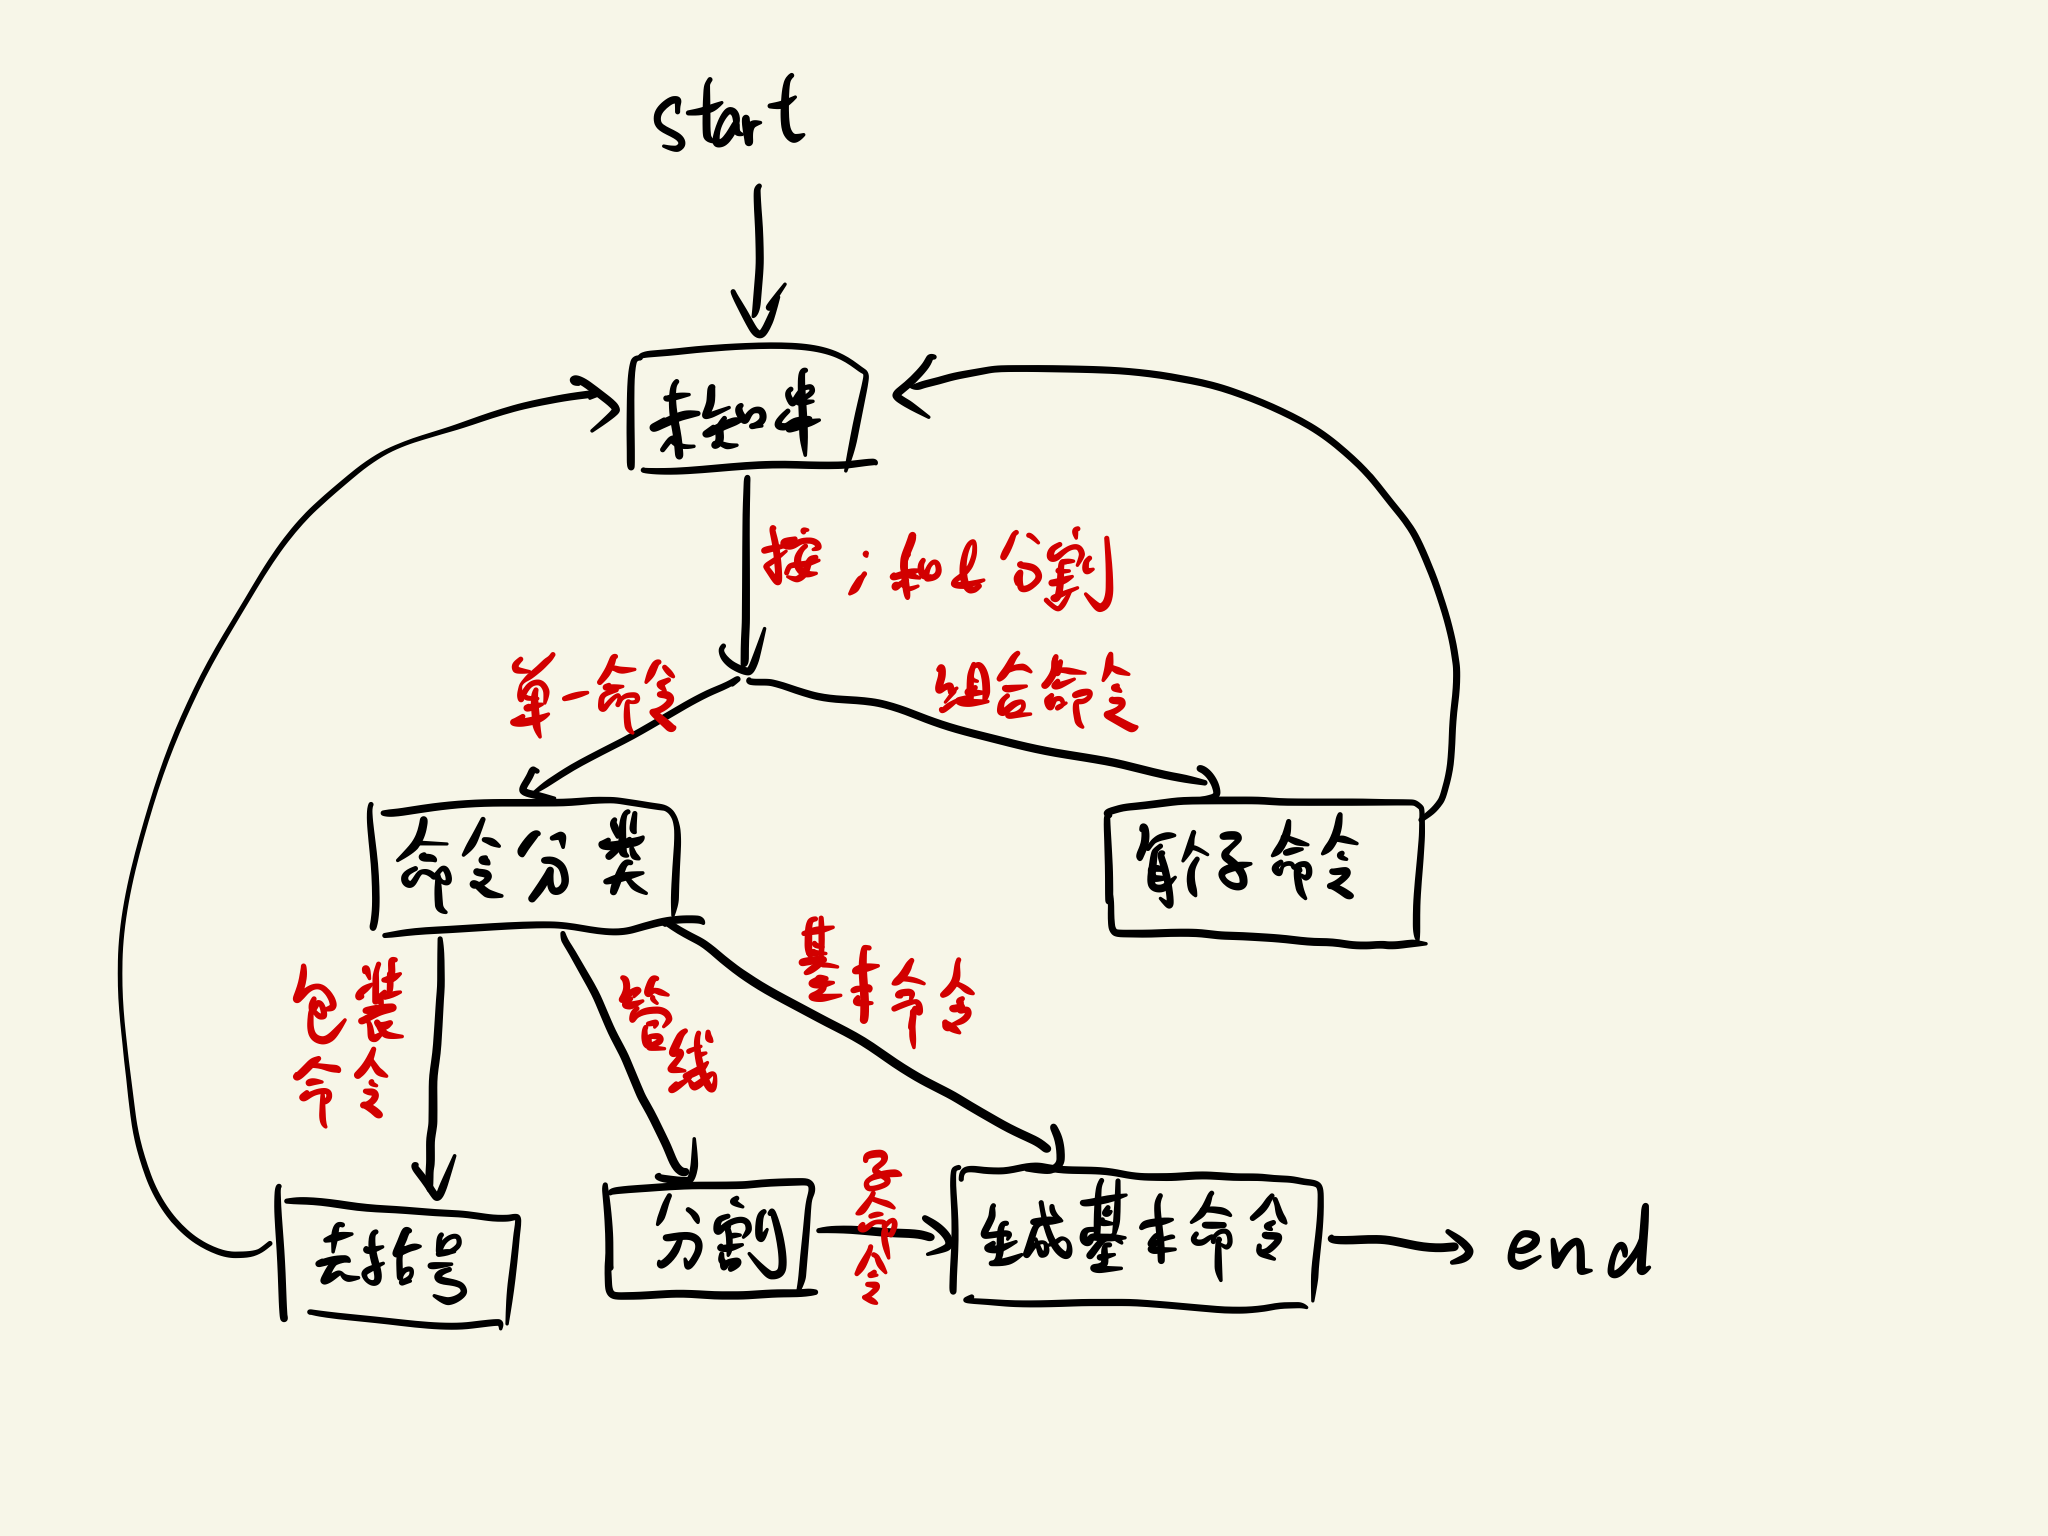 start
未知串
按；和&分割
单一命令
组合命令
命令分类
每个子命令
包装
命令
管线
基本命令
去括号
分割
子命令
生成基本命令
end